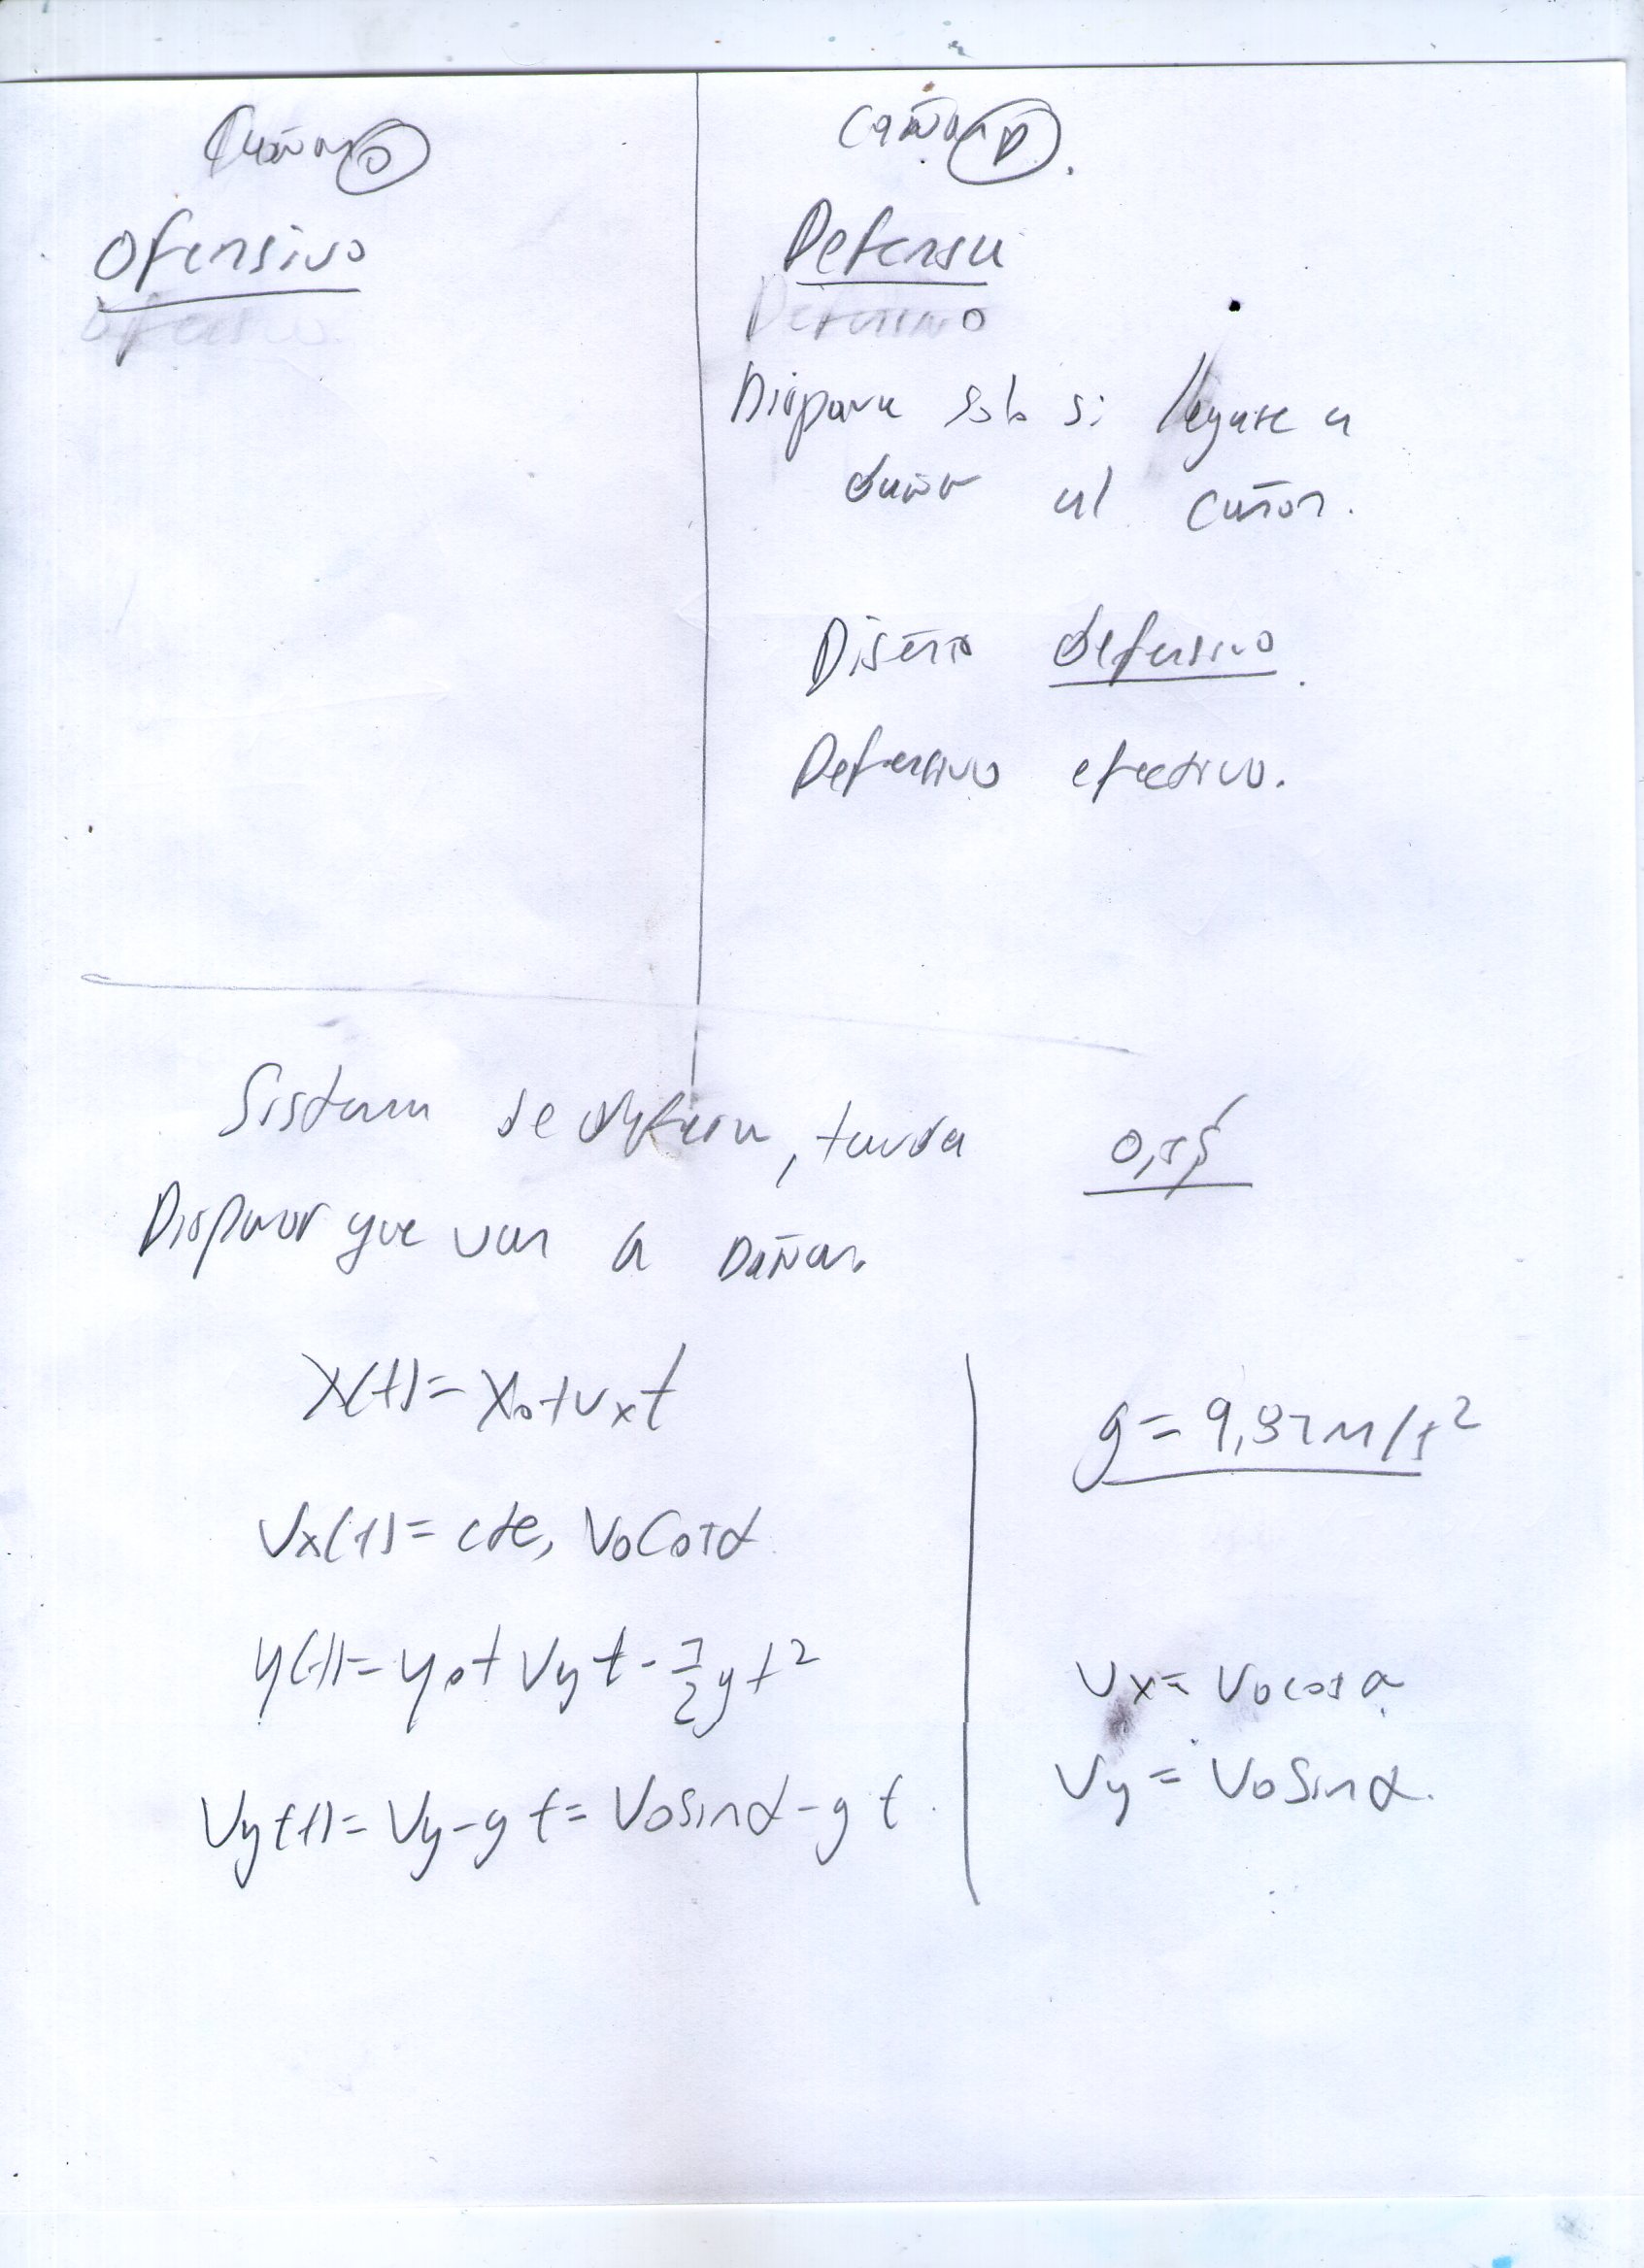 Cañon O
Ofensivo
Cañon D.
Defensa
Defensivo
Dispara solo si llegase a
dañar al cañon.
Diseño defensivo.
Defensivo efectivo.
Sistema de defensa, tarda
Disparos que van a Dañar.
X(t)= X₀+vₓt
Vx(t)= cte, V₀Cosα
y(t)= y₀+ Vy t - ½gt²
Vy(t)= Vy-gt= V₀sinα-gt.
g= 9,81m/s²
Vx= V₀cosα
Vy= V₀Sinα.